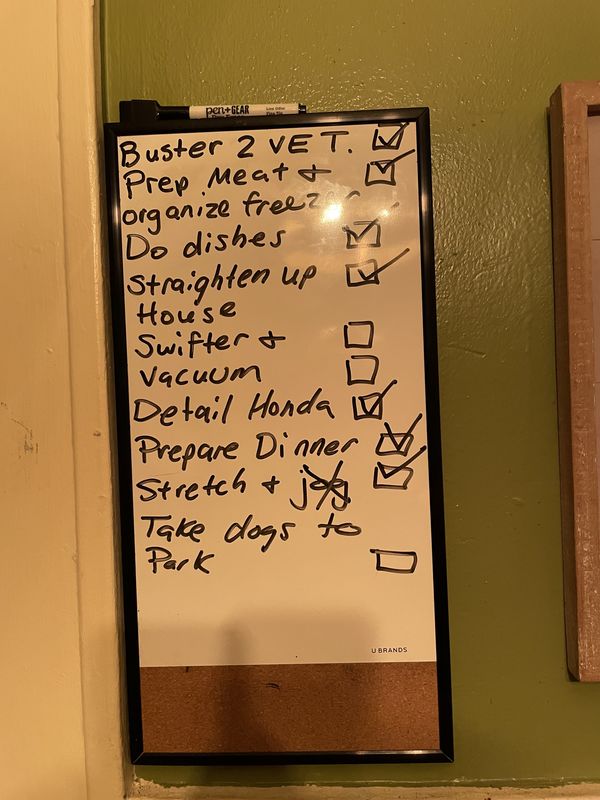 pen+GEAR
Buster 2 VET. ☑
Prep Meat & ☑
organize freezer
Do dishes ☑
Straighten up ☑
House
Swifter & ☐
Vacuum ☐
Detail Honda ☑
Prepare Dinner ☑
Stretch & jog ☑
Take dogs to
Park ☐
U BRANDS